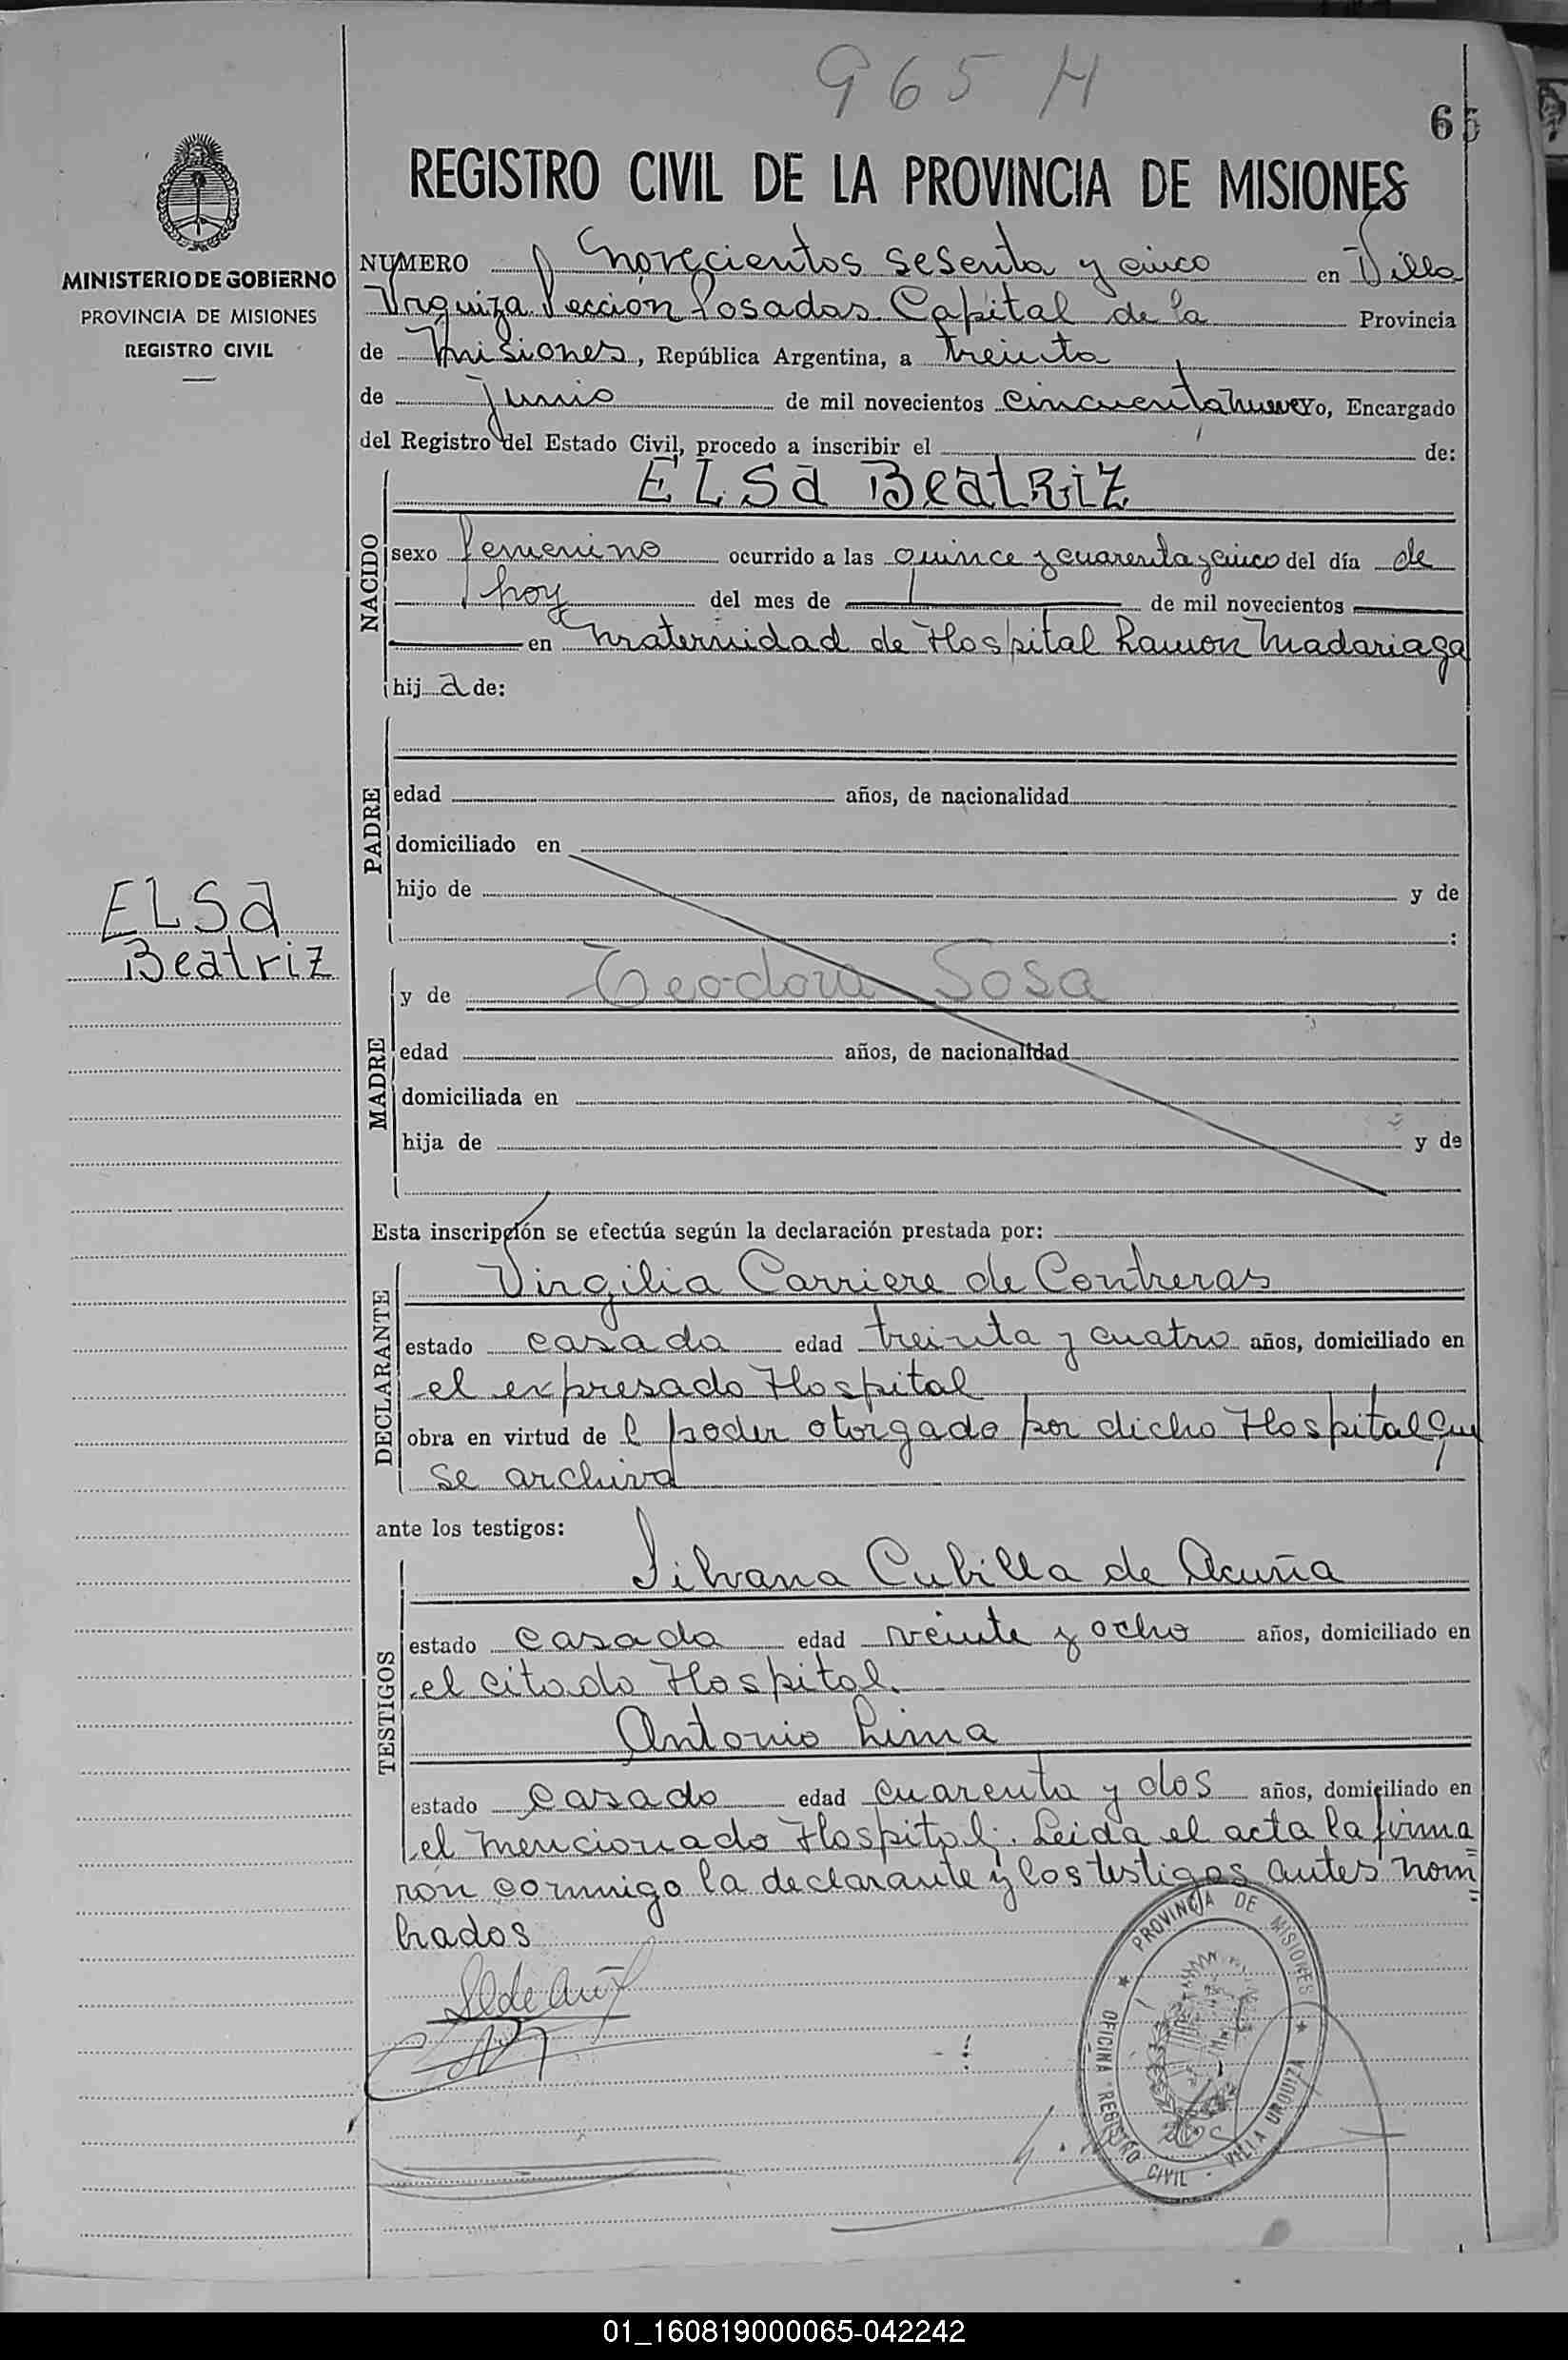 965 H
65
REGISTRO CIVIL DE LA PROVINCIA DE MISIONES
MINISTERIO DE GOBIERNO
PROVINCIA DE MISIONES
REGISTRO CIVIL
NUMERO novecientos sesenta y cinco en Villa
Urquiza Sección Posadas Capital de la Provincia
de Misiones, República Argentina, a treinta
de Junio de mil novecientos cincuenta nueve yo, Encargado
del Registro del Estado Civil, procedo a inscribir el de:
NACIDO
ELSa BeatRiz
sexo femenino ocurrido a las quince y cuarenta y cinco del día de
hoy del mes de de mil novecientos
en Maternidad de Hospital Ramon Madariaga
hij a de:
PADRE
edad años, de nacionalidad
domiciliado en
hijo de y de
:
ELSa
Beatriz
MADRE
y de Teodora Sosa
edad años, de nacionalidad
domiciliada en
hija de y de
Esta inscripción se efectúa según la declaración prestada por:
DECLARANTE
Virgilia Carriere de Contreras
estado casada edad treinta y cuatro años, domiciliado en
el expresado Hospital
obra en virtud de l poder otorgado por dicho Hospital que
se archiva
ante los testigos:
TESTIGOS
Silvana Cubilla de Acuña
estado casada edad veinte y ocho años, domiciliado en
el citado Hospital.
Antonio Lima
estado casado edad cuarenta y dos años, domiciliado en
el mencionado Hospital. Leida el acta la firma
ron conmigo la declarante y los testigos antes nom=
brados
PROVINCIA DE MISIONES
OFICINA REGISTRO CIVIL - VILLA URQUIZA
01_160819000065-042242